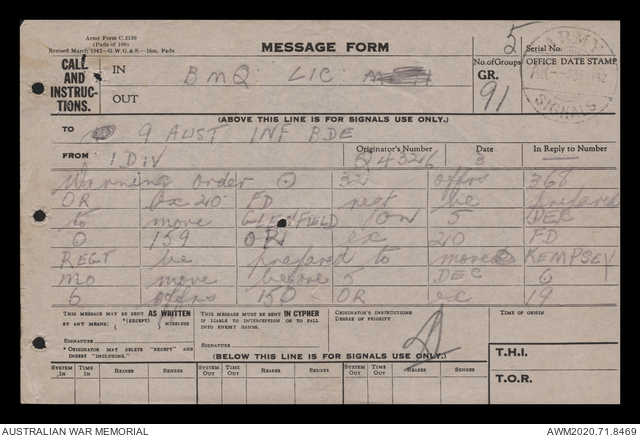 Army Form C.2130
(Pads of 100)
Revised March 1942
MESSAGE FORM
5
Serial No.
No. of Groups
GR.
91
OFFICE DATE STAMP
ARMY
SIGNALS
CALL
AND
INSTRUC-
TIONS.
IN
BMQ LIC
OUT
(ABOVE THIS LINE IS FOR SIGNALS USE ONLY.)
TO 9 AUST INF BDE
FROM 1 DIV
Originator's Number
Q 4326
Date
3
In Reply to Number
Warning order 32 offrs 368
OR ex 210 FD regt be prepared
to move GLENFIELD ON 5 DEC
O 159 OR ex 210 FD
REGT be prepared to move KEMPSEY
mo move before 5 DEC 6
6 offrs 150 OR ex 19
THIS MESSAGE MAY BE SENT AS WRITTEN
BY ANY MEANS (EXCEPT) WIRELESS
SIGNATURE
* ORIGINATOR MAY DELETE "EXCEPT" AND
INSERT "INCLUDING."
THIS MESSAGE MUST BE SENT IN CYPHER
IF LIABLE TO INTERCEPTION OR TO FALL
INTO ENEMY HANDS.
SIGNATURE
ORIGINATOR'S INSTRUCTIONS
DEGREE OF PRIORITY
TIME OF ORIGIN
(BELOW THIS LINE IS FOR SIGNALS USE ONLY.)
T.H.I.
T.O.R.
SYSTEM IN TIME IN READER SENDER SYSTEM OUT TIME OUT READER SENDER SYSTEM OUT TIME OUT READER SENDER
AUSTRALIAN WAR MEMORIAL
AWM2020.71.8469